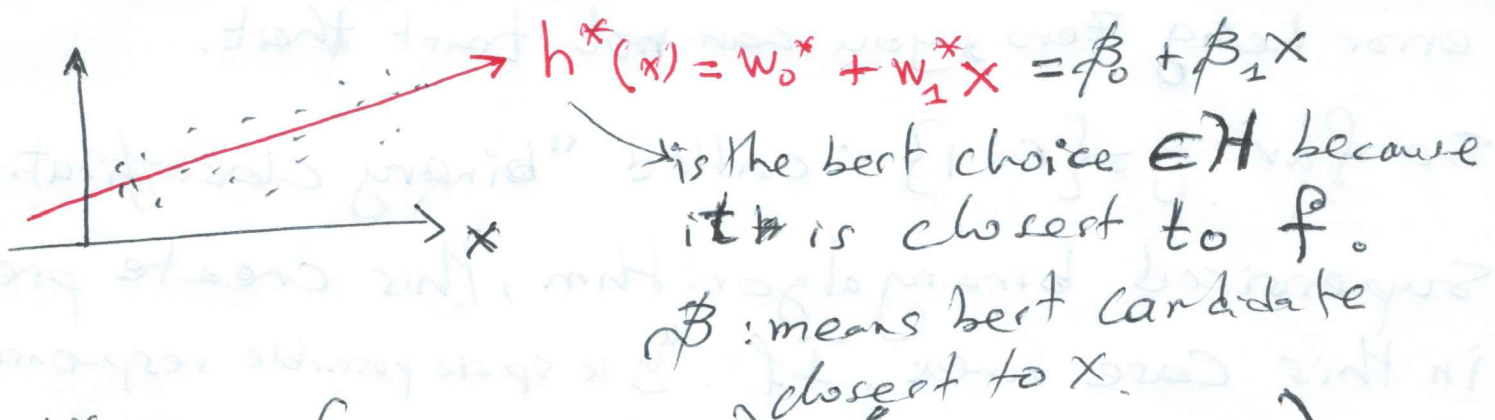 h*(x) = w₀* + w₁* x = β₀ + β₁ x
is the best choice ∈ H because
it is closest to f.
x
β : means best candidate
closest to x.